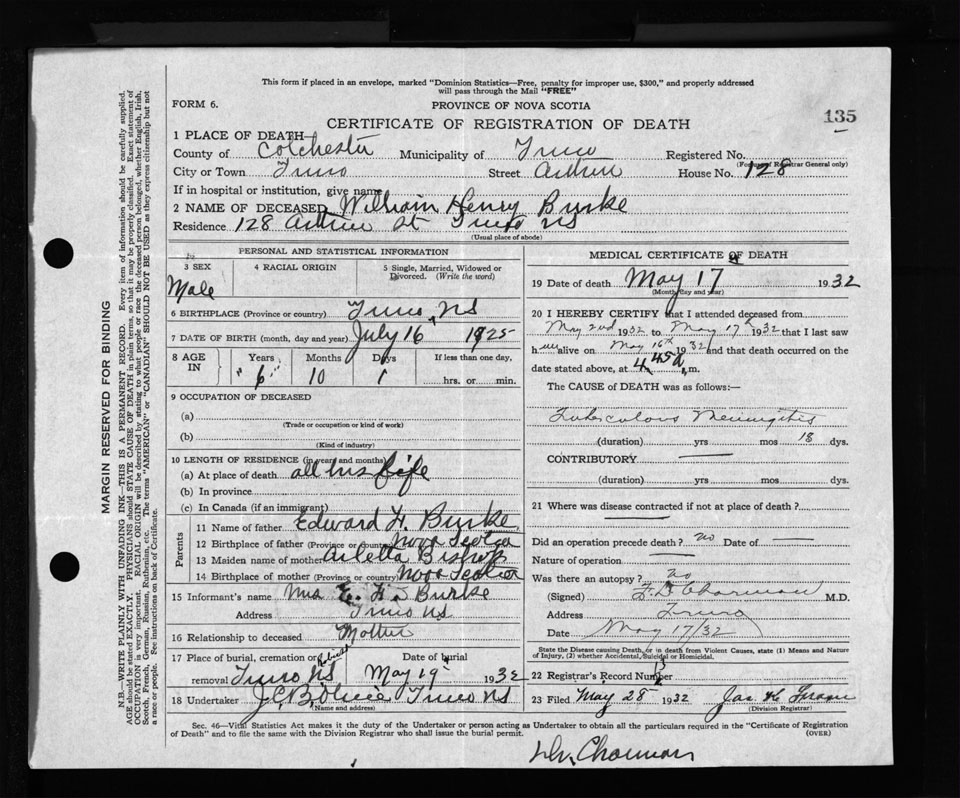 This form if placed in an envelope, marked "Dominion Statistics—Free, penalty for improper use, $300," and properly addressed
will pass through the Mail "FREE"
FORM 6.
PROVINCE OF NOVA SCOTIA
135
CERTIFICATE OF REGISTRATION OF DEATH
1 PLACE OF DEATH—
County of Colchester Municipality of Truro Registered No.
(For use of Registrar General only)
City or Town Truro Street Arthur House No. 128
If in hospital or institution, give name
2 NAME OF DECEASED William Henry Burke
Residence 128 Arthur St Truro NS
(Usual place of abode)
PERSONAL AND STATISTICAL INFORMATION
3 SEX 4 RACIAL ORIGIN 5 Single, Married, Widowed or
Divorced. (Write the word)
Male
6 BIRTHPLACE (Province or country) Truro, NS
7 DATE OF BIRTH (month, day and year) July 16 1925
8 AGE IN Years Months Days If less than one day,
6 10 1 hrs. or min.
9 OCCUPATION OF DECEASED
(a)
(Trade or occupation or kind of work)
(b)
(Kind of industry)
10 LENGTH OF RESIDENCE (in years and months)
(a) At place of death all his life
(b) In province
(c) In Canada (if an immigrant)
Parents
11 Name of father Edward H. Burke
12 Birthplace of father (Province or country) Nova Scotia
13 Maiden name of mother Arletta Bishop
14 Birthplace of mother (Province or country) Nova Scotia
15 Informant's name Mrs E. H. Burke
Address Truro NS
16 Relationship to deceased Mother
17 Place of burial, cremation or Date of burial
removal Truro NS May 19 1932
18 Undertaker Truro NS
(Name and address)
MEDICAL CERTIFICATE OF DEATH
19 Date of death May 17 1932
(Month, day and year)
20 I HEREBY CERTIFY that I attended deceased from
May 2nd 1932 to May 17th 1932 that I last saw
h im alive on May 16th 1932 and that death occurred on the
date stated above, at 4.45 a.m.
The CAUSE of DEATH was as follows:—
Tuberculous Meningitis
(duration) yrs mos 18 dys.
CONTRIBUTORY
(duration) yrs mos dys.
21 Where was disease contracted if not at place of death?
Did an operation precede death? no Date of
Nature of operation
Was there an autopsy? no
(Signed) Charman M.D.
Address Truro
Date May 17/32
State the Disease causing Death, or in death from Violent Causes, state (1) Means and Nature
of Injury, (2) whether Accidental, Suicidal or Homicidal.
22 Registrar's Record Number
23 Filed May 28 1932
(Division Registrar)
Sec. 46—Vital Statistics Act makes it the duty of the Undertaker or person acting as Undertaker to obtain all the particulars required in the "Certificate of Registration
of Death" and to file the same with the Division Registrar who shall issue the burial permit.
(OVER)
Dr. Charman
MARGIN RESERVED FOR BINDING
N.B.—WRITE PLAINLY WITH UNFADING INK—THIS IS A PERMANENT RECORD. Every item of information should be carefully supplied.
AGE should be stated EXACTLY. PHYSICIANS should STATE CAUSE OF DEATH in plain terms, so that it may be properly classified. Exact statement of
OCCUPATION is very important. RACIAL ORIGIN will be described by stating to what people or race the deceased person belonged, whether English, Irish,
Scotch, French, German, Russian, Ruthenian, etc. The terms "AMERICAN" or "CANADIAN" SHOULD NOT BE USED as they express citizenship but not
a race or people. See instructions on back of Certificate.